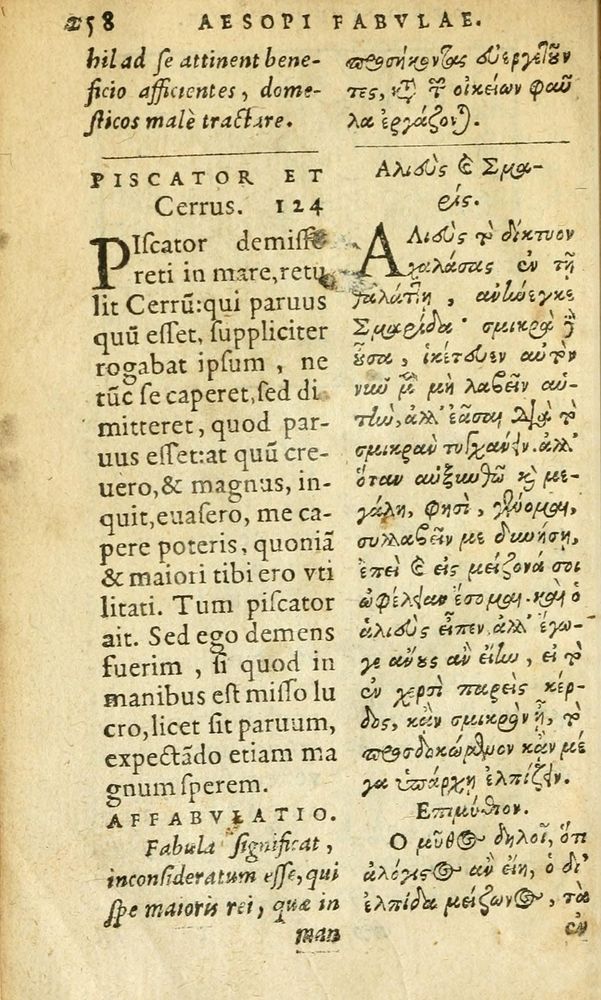 258 AESOPI FABVLAE.
hil ad se attinent bene-
ficio afficientes, dome-
sticos malè tractare.
PISCATOR ET
Cerrus. 124
PIscator demisso
reti in mare, retu
lit Cerrū: qui paruus
quū esset, suppliciter
rogabat ipsum, ne
tūc se caperet, sed di
mitteret, quod par-
uus esset: at quū cre-
uero, & magnus, in-
quit, euasero, me ca-
pere poteris, quoniā
& maiori tibi ero vti
litati. Tum piscator
ait. Sed ego demens
fuerim, si quod in
manibus est misso lu
cro, licet sit paruum,
expectādo etiam ma
gnum sperem.
AFFABVLATIO.
Fabula significat,
inconsideratum esse, qui
spe maioris rei, quæ in
man
προσήκοντας εὐεργετοῦν
τες, καὶ τῶν οἰκείων φαῦ
λα ἐργάζονται.
Αλιεὺς καὶ Σμα-
ρίς.
ΑΛιεὺς τὸ δίκτυον
χαλάσας ἐν τῇ
θαλάττῃ, ἀνήνεγκε
Σμαρίδα· σμικρὰ δὲ
οὖσα, ἱκέτευεν αὐτὸν
νῦν μὲν μὴ λαβεῖν αὐ-
τὴν, ἀλλ' ἐᾶσαι διὰ τὸ
σμικρὰν τυγχάνειν. ἀλλ'
ὅταν αὐξηθῶ καὶ με-
γάλη, φησὶ, γένομαι,
συλλαβεῖν με δυνήσῃ,
ἐπεὶ καὶ εἰς μείζονά σοι
ὠφέλειαν ἔσομαι. καὶ ὁ
ἁλιεὺς εἶπεν. ἀλλ' ἔγω-
γε ἄνους ἂν εἴην, εἰ τὸ
ἐν χερσὶ παρεὶς κέρ-
δος, κἂν σμικρὸν ᾖ, τὸ
προσδοκώμενον κἂν μέ
γα ὑπάρχῃ ἐλπίζειν.
Επιμύθιον.
Ο μῦθος δηλοῖ, ὅτι
ἀλόγιστος ἂν εἴη, ὁ δι'
ἐλπίδα μείζονος, τὰ
ἐν